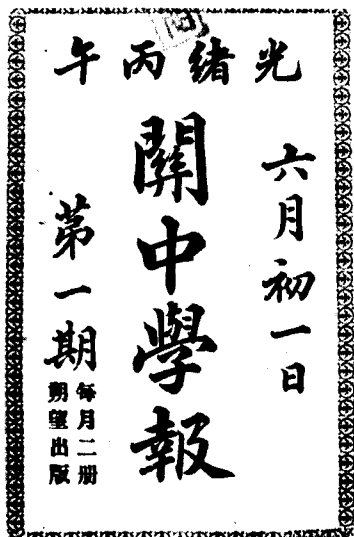 光緒丙午
六月初一日
關中學報
第一期
每月二册
朔望出版